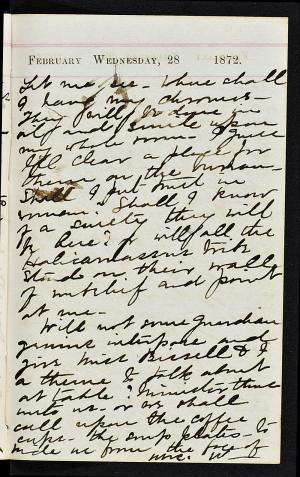 FEBRUARY WEDNESDAY, 28 1872.
Let me see - Where shall
I hang my chromos -
They will be done in
oil and smile upon
my whole room. I guess
I'll clear a place for
them on the
I put trust in
woman? Shall I know
of a surety they will
be here? or will all the
Halicarnassus tribe
stand on their walls
of mischief and point
at me -
Will not some guardian
genius interpose and
give Miss Bissell & I
a theme to talk about
at table? Minister thou
unto us - or we shall
call upon the coffee
cups - the soup plates - to
hide us from the face of